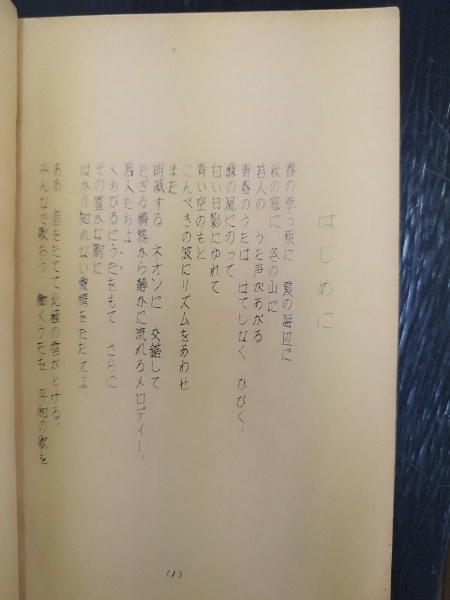 はじめに
春の草っ原に 夏の海辺に
秋の窓に 冬の山に
若人の うた声があがる
青春のうたは はてしなく ひびく、
緑の風にのって
白い日影にゆれて
青い空のもと
こんぺきの波にリズムをあわせ
また
明滅する ネオンに 交錯して
たぎる情熱から静かに流れるメロディー、
若人たちよ
くちびるにうたをもて さらに
その豊かな胸に
はかり知れない愛情をたたえよ、
ああ 音をたてて北極の雪がとける、
みんなで歌おう 働くうたを 平和の歌を
(1)